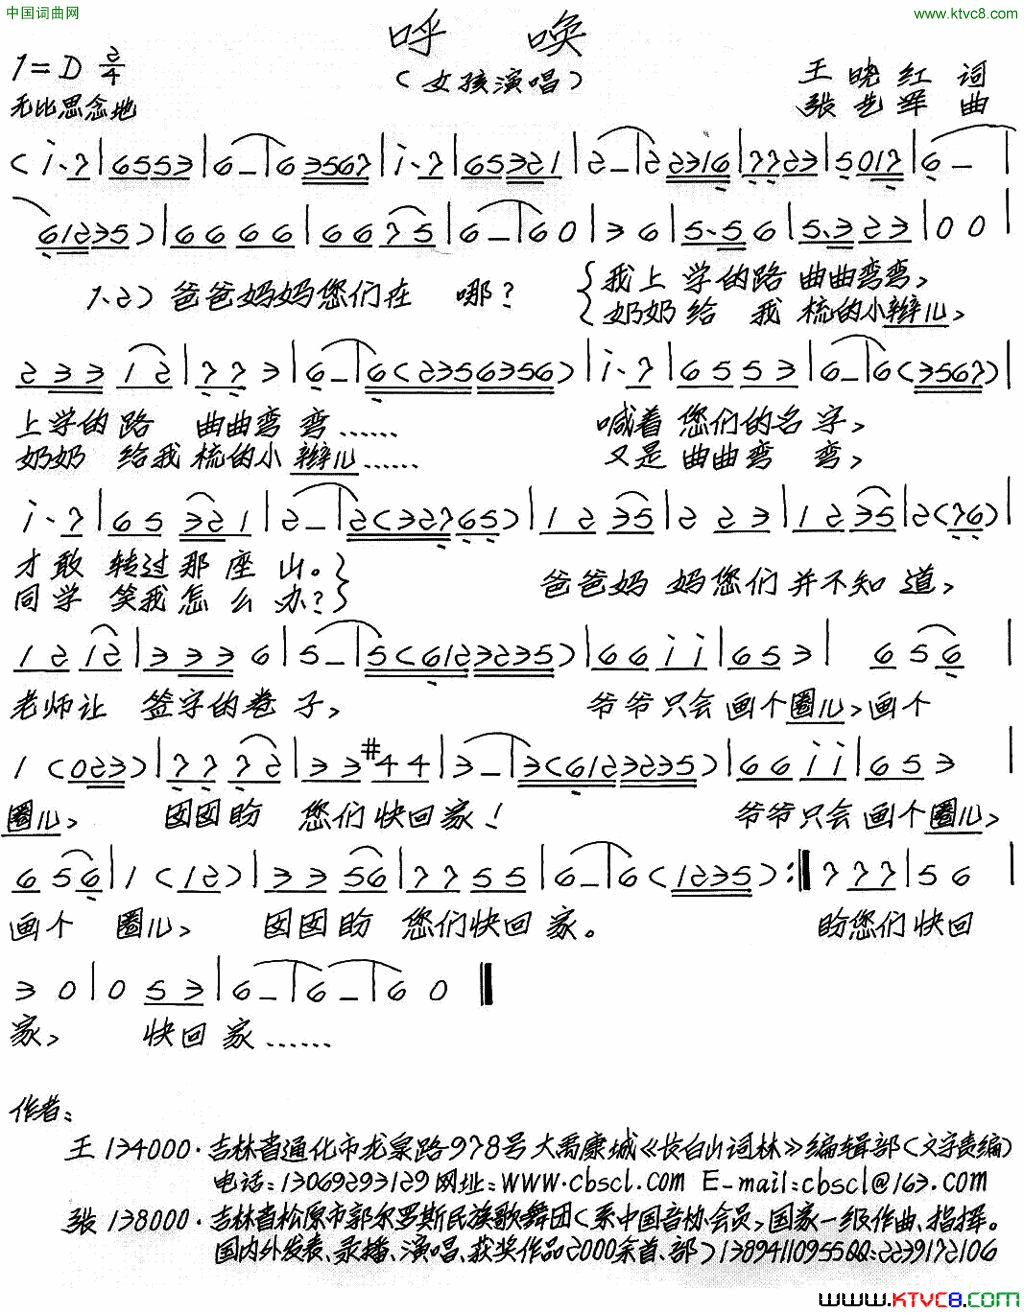 中国词曲网
www.ktvc8.com
呼 唤
(女孩演唱)
1=D 2/4
无比思念地
王晓红 词
张艺军 曲
(i·7|6553|6-|63567|i·7|65321|2-|22316|7723|5017|6-|
61235)|6666|6675|6-|60|36|5·56|5·323|00|
1.2)爸爸妈妈您们在 哪?
{我上 学的路 曲曲弯弯,
{奶奶给 我 梳的小辫儿,
23312|773|6-|6(2356356)|i·7|6553|6-|6(3567)|
上学的路 曲曲弯弯…… 喊着您们的名字,
奶奶 给我梳的小辫儿…… 又是曲曲弯 弯,
i·7|65321|2-|2(32765)|1235|223|1235|2(76)|
才敢 转过那座山。}
同学 笑我怎么办?}
爸爸妈 妈您们并不知 道,
1212|3336|5-|5(6123235)|66ii|653|656|
老师让 签字的卷 子, 爷爷只会画个圈儿,画个
1(023)|7772|33#44|3-|3(6123235)|66ii|653|
圈儿, 囡囡盼 您们快回家! 爷爷只会画个圈儿,
656|1(12)|3356|7755|6-|6(1235):‖777|56|
画个 圈儿, 囡囡盼 您们快回家。 盼您们快回
30|053|6-|6-|60‖
家, 快回家……
作者:
王 134000·吉林省通化市龙泉路978号大禹康城《长白山词林》编辑部(文字责编)
电话:13069293129网址:www.cbscl.com E-mail:cbscl@163.com
张 138000·吉林省松原市郭尔罗斯民族歌舞团(系中国音协会员,国家一级作曲、指挥。
国内外发表、录播、演唱、获奖作品2000余首、部)13894110955QQ:2239172106
www.KTVC8.com